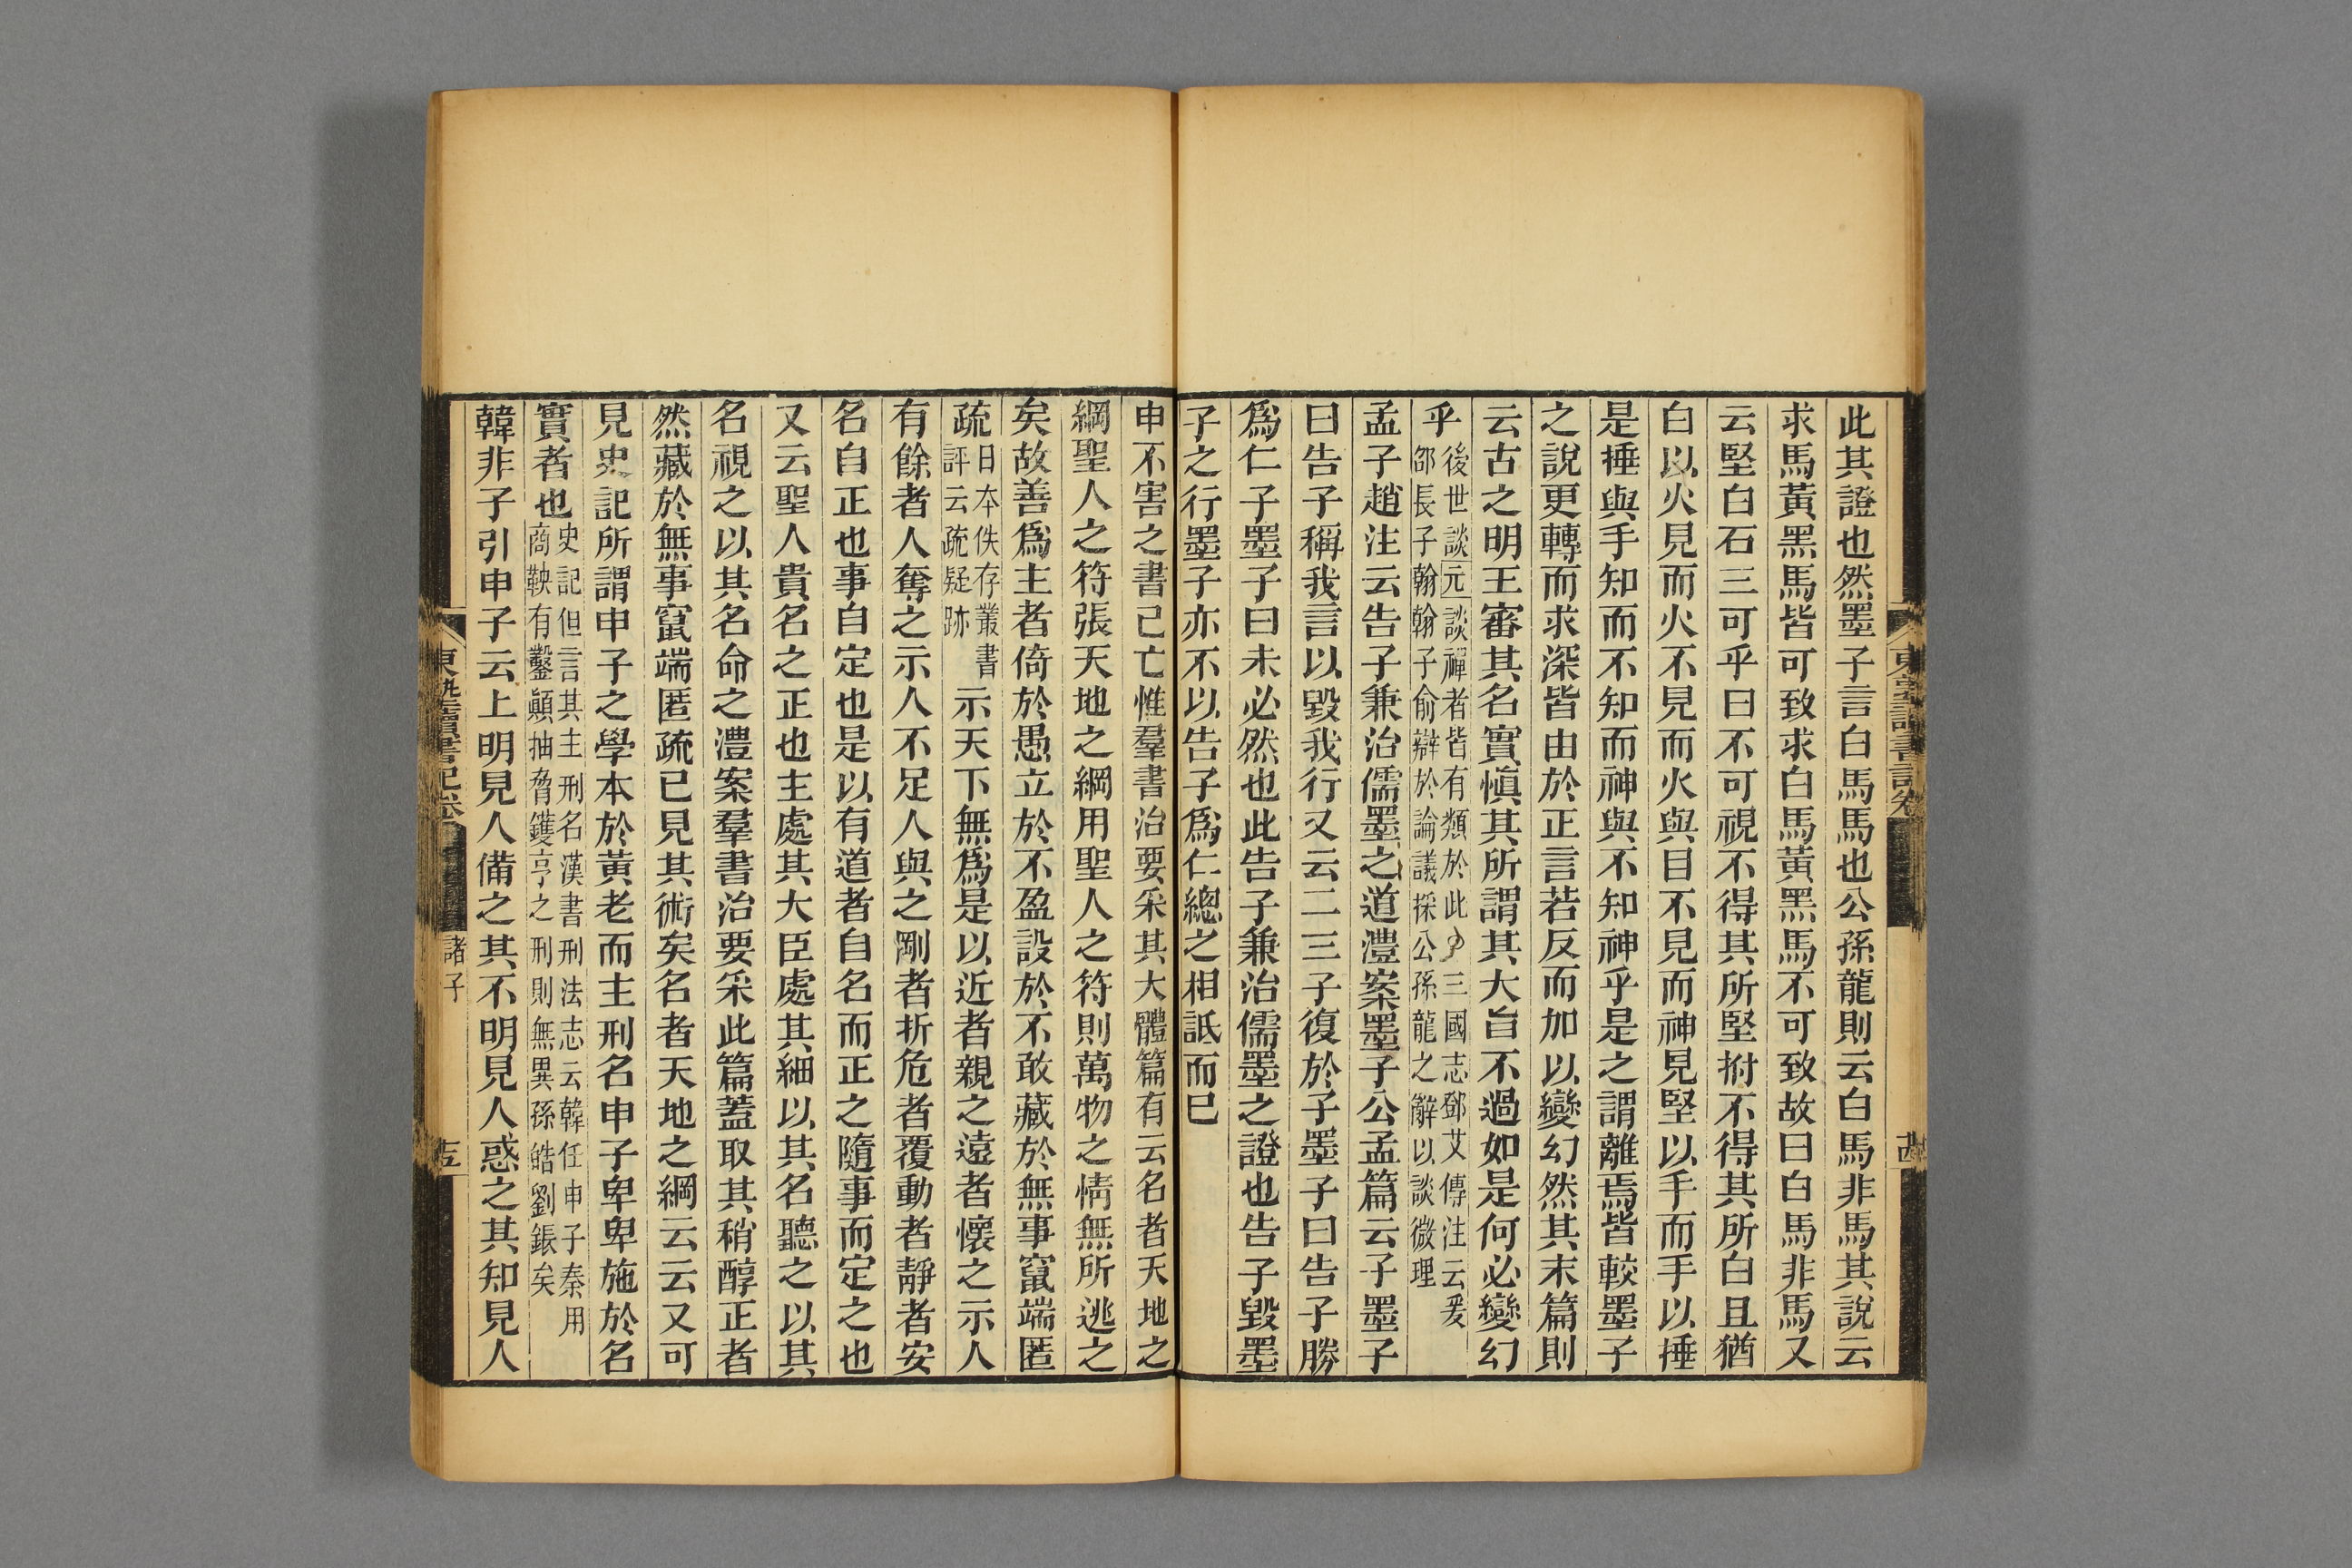 此其證也然墨子言白馬馬也公孫龍則云白馬非馬其說云
求馬黃黑馬皆可致求白馬黃黑馬不可致故曰白馬非馬又
云堅白石三可乎曰不可視不得其所堅拊不得其所白且猶
白以火見而火不見而火與目不見而神見堅以手而手以捶
是捶與手知而不知而神與不知神乎是之謂離焉皆較墨子
之說更轉而求深皆由於正言若反而加以變幻然其末篇則
云古之明王審其名實愼其所謂其大旨不過如是何必變幻
乎
後世談元談禪者皆有類於此三國志鄧艾傳注云爰
邵長子翰翰子俞辯於論議採公孫龍之辭以談微理
孟子趙注云告子兼治儒墨之道澧案墨子公孟篇云子墨子
曰告子稱我言以毀我行又云二三子復於子墨子曰告子勝
爲仁子墨子曰未必然也此告子兼治儒墨之證也告子毀墨
子之行墨子亦不以告子爲仁總之相詆而已
申不害之書已亡惟羣書治要采其大體篇有云名者天地之
綱聖人之符張天地之綱用聖人之符則萬物之情無所逃之
矣故善爲主者倚於愚立於不盈設於不敢藏於無事竄端匿
疏
日本佚存叢書
評云疏疑跡
示天下無爲是以近者親之遠者懷之示人
有餘者人奪之示人不足人與之剛者折危者覆動者靜者安
名自正也事自定也是以有道者自名而正之隨事而定之也
又云聖人貴名之正也主處其大臣處其細以其名聽之以其
名視之以其名命之澧案羣書治要采此篇蓋取其稍醇正者
然藏於無事竄端匿疏已見其術矣名者天地之綱云云又可
見史記所謂申子之學本於黃老而主刑名申子卑卑施於名
實者也
史記但言其主刑名漢書刑法志云韓任申子秦用
商鞅有鑿顚抽脅鑊亨之刑則無異孫皓劉鋹矣
韓非子引申子云上明見人備之其不明見人惑之其知見人
東塾讀書記卷
諸子
十五
東塾讀書記卷
十四